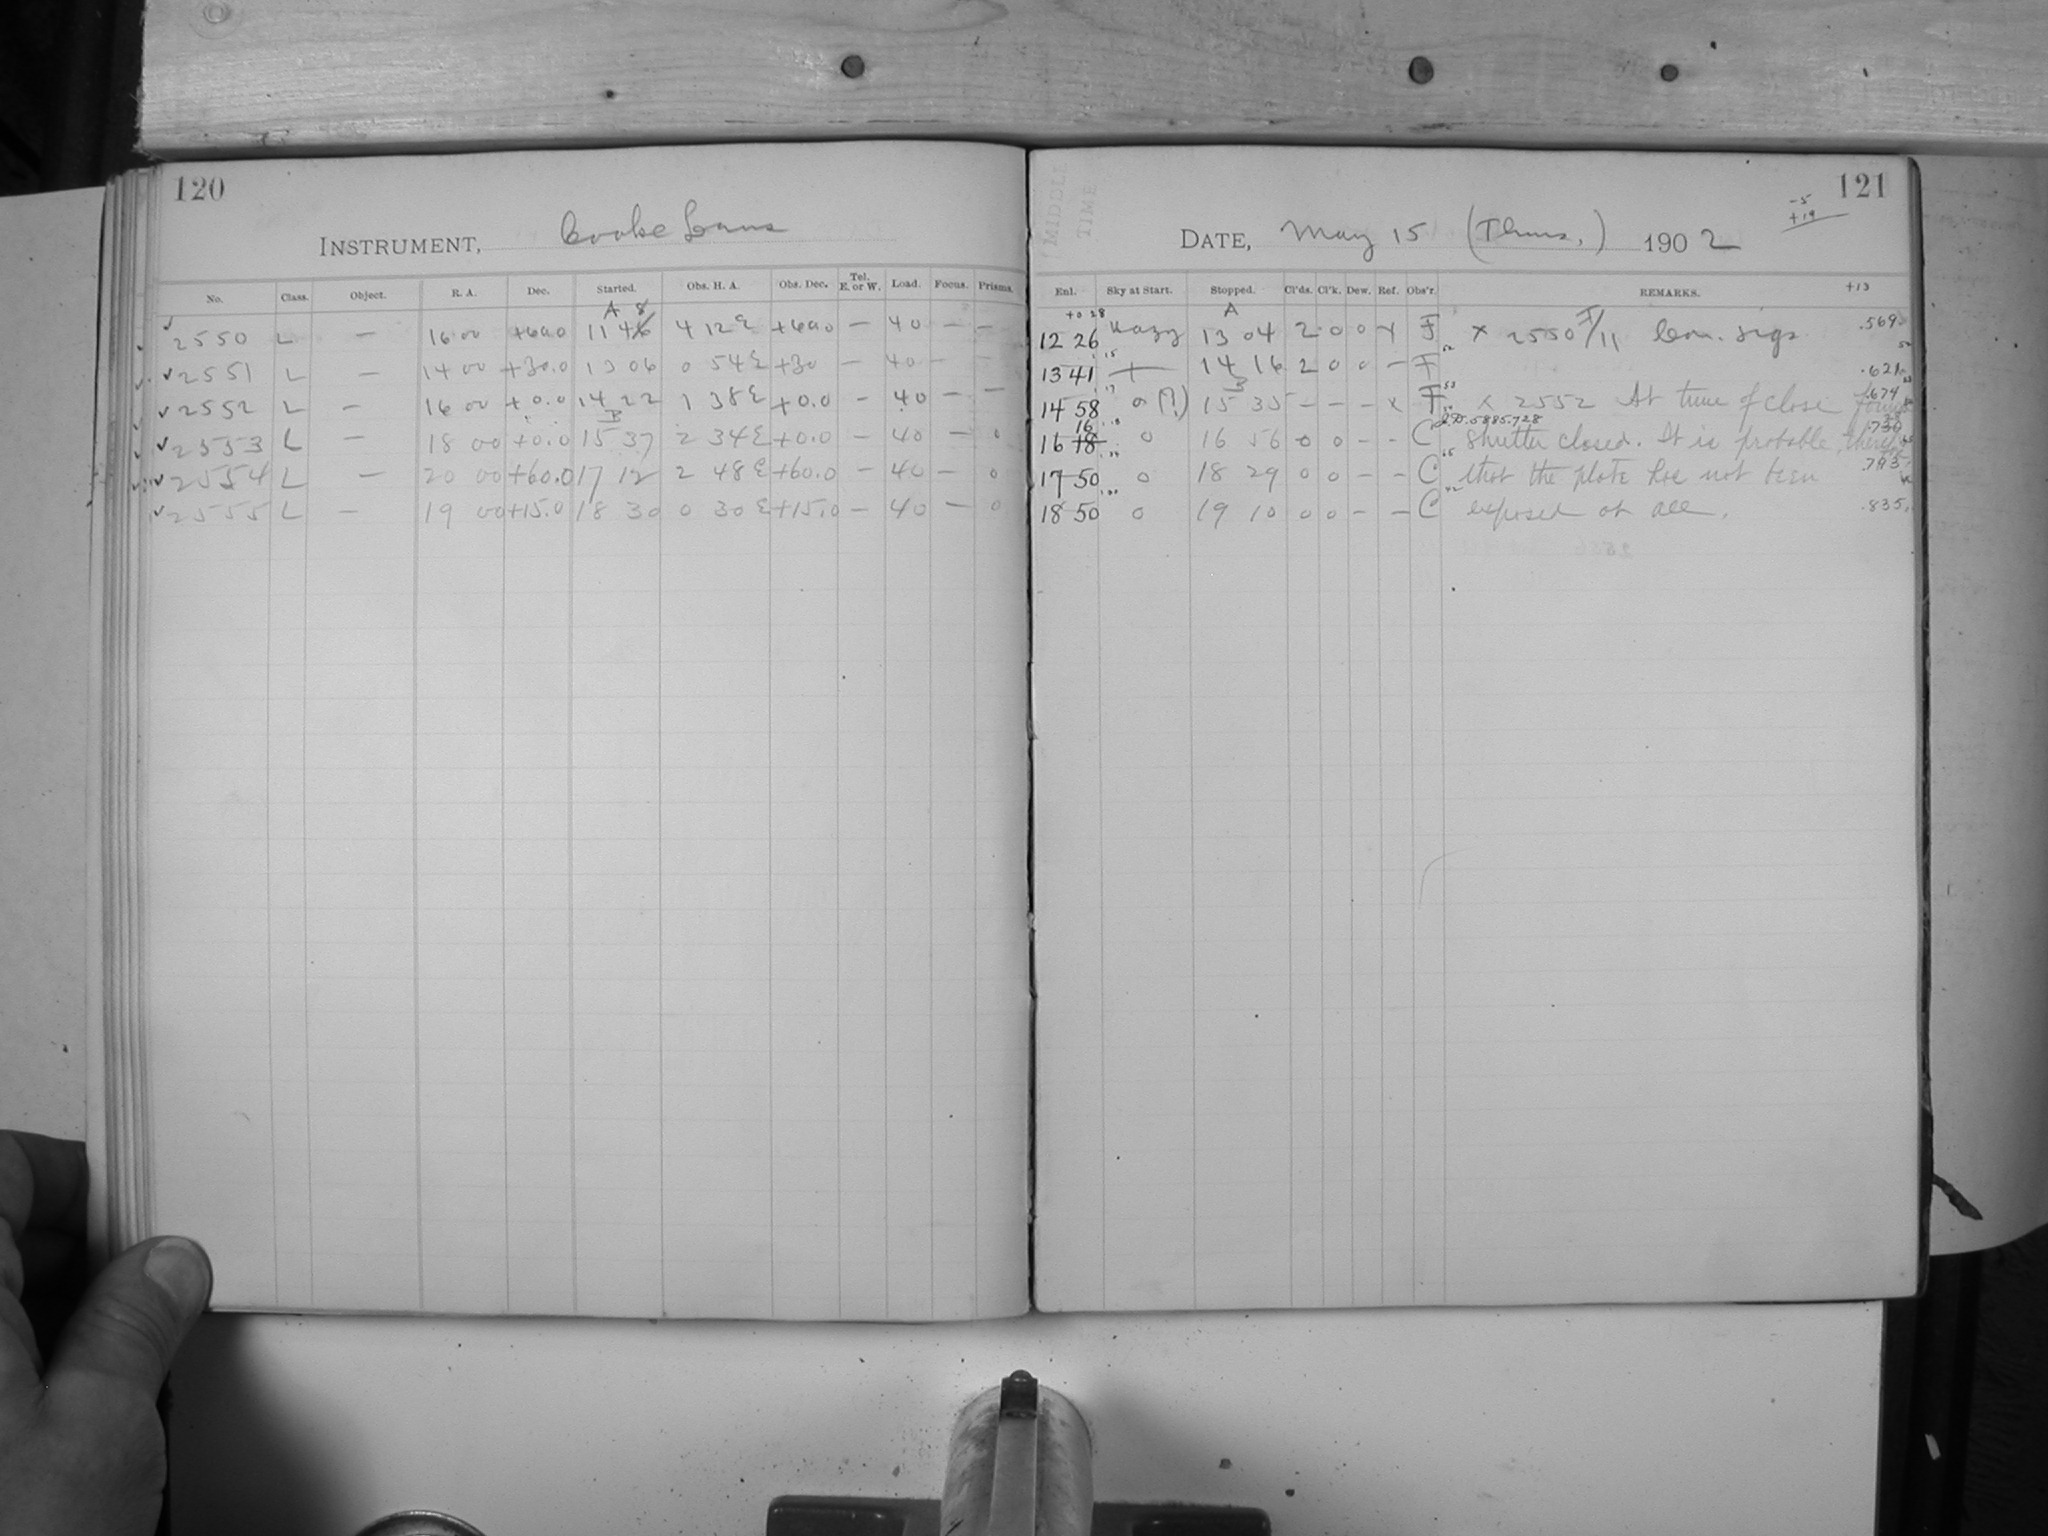 120
INSTRUMENT, Cooke Lens
No. Class. Object. R. A. Dec. Started. Obs. H. A. Obs. Dec. Tel. E. or W. Load. Focus. Prisms.
A 8
2550 L — 16 00 +60.0 11 46 4 12 E +60.0 — 40 — —
2551 L — 14 00 +30.0 13 06 0 54 E +30 — 40 — —
2552 L — 16 00 +0.0 14 22 1 38 E +0.0 — 40 — —
B
2553 L — 18 00 +0.0 15 37 2 34 E +0.0 — 40 — 0
2554 L — 20 00 +60.0 17 12 2 48 E +60.0 — 40 — 0
2555 L — 19 00 +15.0 18 30 0 30 E +15.0 — 40 — 0
121
-5
+19
DATE, May 15 (Thurs.) 1902
Enl. Sky at Start. Stopped. Cl'ds. Cl'k. Dew. Ref. Obs'r. REMARKS. +13
A
12 26 Hazy 13 04 2 0 0 x F x 2550 I/11 Con. sigs .569
13 41 + 14 16 2 0 0 — F .621
14 58 0 (?) 15 35 — — — x F x 2552 At time of close found .674
16
16 18 0 16 56 0 0 — — C shutter closed. It is probable, .730
17 50 0 18 29 0 0 — — C that the plate has not been .793
18 50 0 19 10 0 0 — — C exposed at all. .835